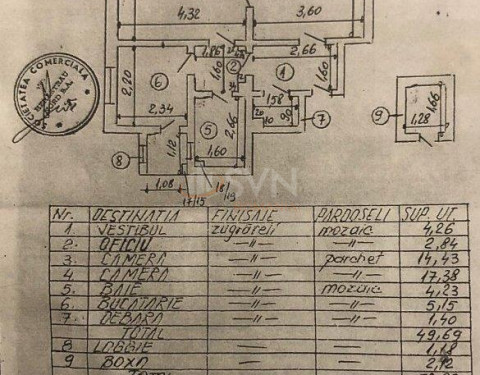 4,32 3,60
1,86 2 2,66
6 1,60 1 1,60
2,20
SOCIETATEA COMERCIALA
2,34 1,58 1,66
5 7 9 1,28
2,66
1,12
8 1,60
1,08
17/15 18/19
SVN
Nr. DESTINATIA FINISAJE PARDOSELI SUP. UT.
1 VESTIBUL zugrăveli mozaic 4,26
2. OFICIU —//— —//— 2,84
3 CAMERA —//— parchet 14,43
4 CAMERA —//— —//— 17,38
5. BAIE —//— mozaic 4,23
6. BUCATARIE —//— —//— 5,15
7 DEBARA —//— —//— 1,40
TOTAL 49,69
8 LOGGIE — — 1,18
9 BOXA — — 2,12
TOTAL